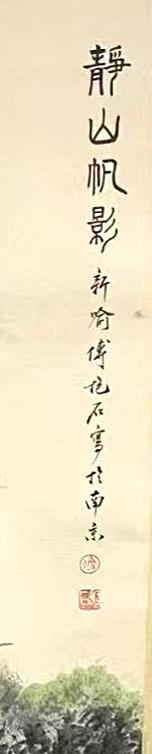 靜山帆影 新喻傅抱石寫於南京